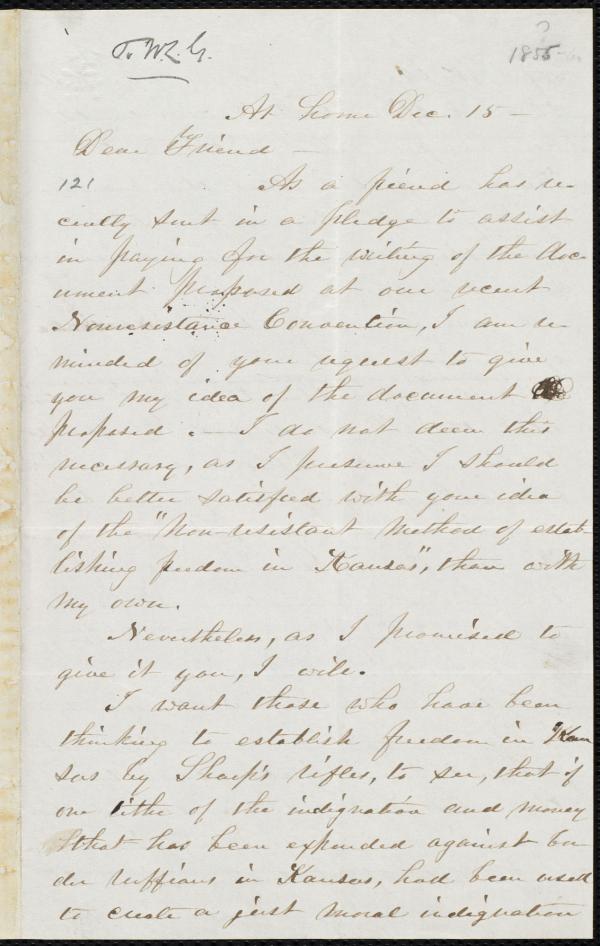 To W. L. G.
?
1855
At home Dec. 15 –
Dear Friend –
121
As a friend has re-
cently sent in a pledge to assist
in paying for the writing of the doc-
ument proposed at our recent
Nonresistance Convention, I am re-
minded of your request to give
you my idea of the document
proposed. – I do not deem this
necessary, as I presume I should
be better satisfied with your idea
of the "Non-resistant method of estab-
lishing freedom in Kansas", than with
my own.
Nevertheless, as I promised to
give it you, I will.
I want those who have been
thinking to establish freedom in Kan
sas by Sharp's rifles, to see, that if
one tithe of the indignation and money
that has been expended against bor
der ruffians in Kansas, had been used
to create a just moral indignation